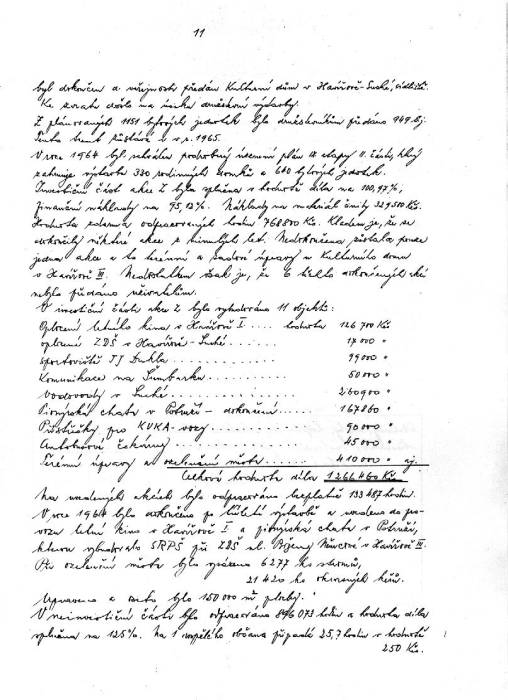 11
byl dokončen a veřejnosti předán Kulturní dům v Havířově-Suché, sídliště.
Ke zvratu došlo na úseku družstevní výstavby.
Z plánovaných 1151 bytových jednotek bylo družstevníkům předáno 949 b.j.
Tento trend zůstává i v r. 1965.
V roce 1964 byl schválen podrobný územní plán IX etapy II. části, který
zahrnuje výstavbu 330 rodinných domků a 680 bytových jednotek.
Investiční část akce Z byla splněna v hodnotě díla na 100,97%,
finanční náklady na 95,12%. Náklady na materiál činily 329 500 Kčs.
Hodnota zdarma odpracovaných hodin 768 800 Kčs. Kladem je, že se
dokončily některé akce z minulých let. Nedokončena zůstala pouze
jedna akce a to terénní a sadové úpravy u Kulturního domu
v Havířově III. Nedostatkem však je, že 6 těchto dokončených akcí
nebylo předáno uživatelům.
V investiční části akce Z bylo vybudováno 11 objektů:
Oplocení letního kina v Havířově I .... hodnota 126 700 Kčs
oplocení ZDŠ v Havířově-Suché .......... 17 000 "
Sportoviště TJ Dukla .......... 99 000 "
Komunikace na Šumbarku .......... 50 000 "
Vodovody v Suché .......... 260 900 "
Pionýrská chata v Pobučí - dokončení ...... 167 860 "
Přístřešky pro KUKA-vozy .......... 90 000 "
Autobusové čekárny .......... 45 000 "
Terénní úpravy a ozelenění města .......... 410 000 " aj.
Celková hodnota díla 1 266 460 Kčs.
Na uvedených akcích bylo odpracováno bezplatně 133 487 hodin.
V roce 1964 bylo dokončeno po leté výstavbě a uvedeno do pro-
vozu letní kino v Havířově I a pionýrská chata v Pobučí,
kterou vybudovalo SRPŠ při ZDŠ ul. v Havířově III.
Při ozelenění města bylo vysázeno 6277 ks stromů,
21 420 ks okrasných keřů.
Upraveno a zaseto bylo 150 000 m² plochy.
V neinvestiční části bylo odpracováno 896 073 hodin a hodnota díla
splněna na 125%. Na 1 dospělého občana připadá 25,7 hodin v hodnotě
250 Kčs.